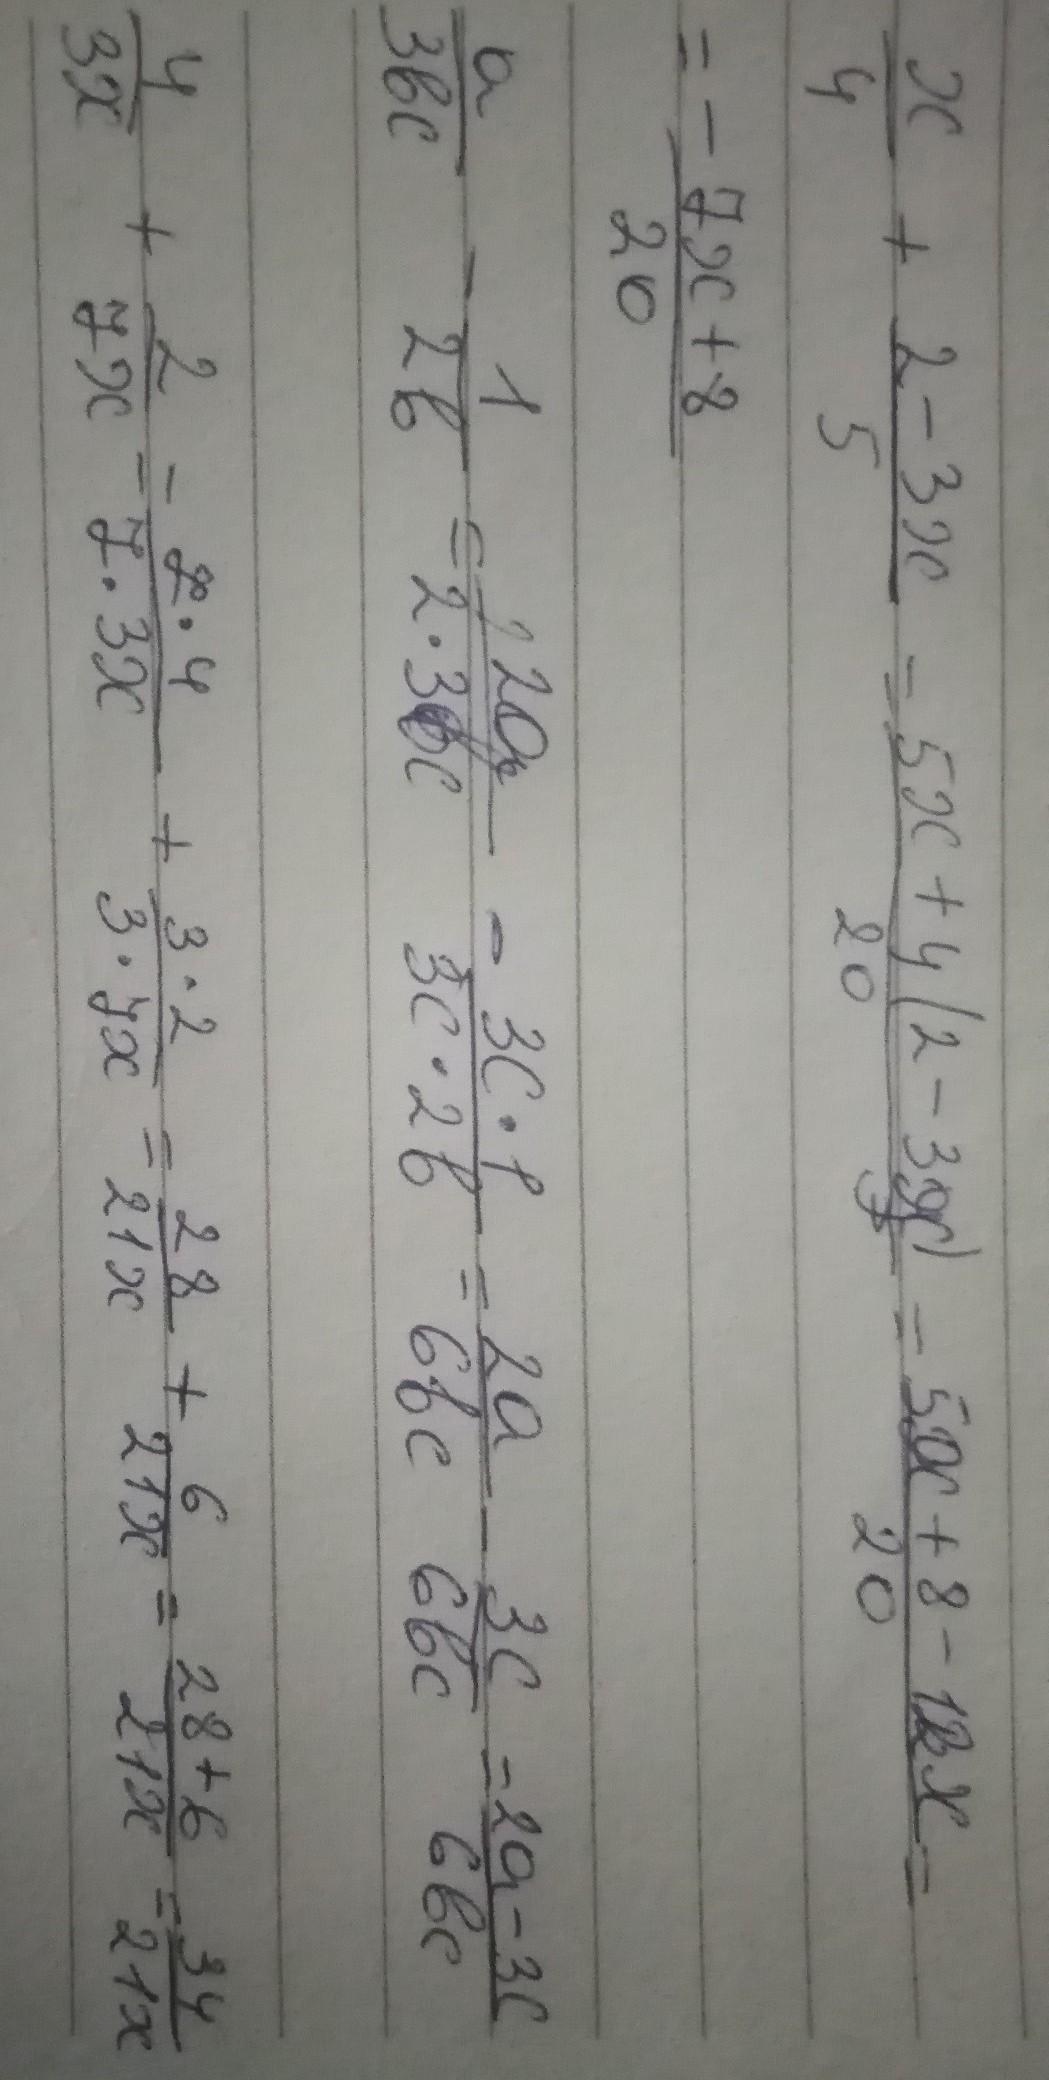 x/4 + 2-3x/5 = 5x+4(2-3x)/20 = 5x+8-12x/20 =
= -7x+8/20
a/3bc - 1/2b = 2a/2·3bc - 3c·1/3c·2b = 2a/6bc - 3c/6bc = 2a-3c/6bc
4/3x + 2/7x = 7·4/7·3x + 3·2/3·7x = 28/21x + 6/21x = 28+6/21x = 34/21x